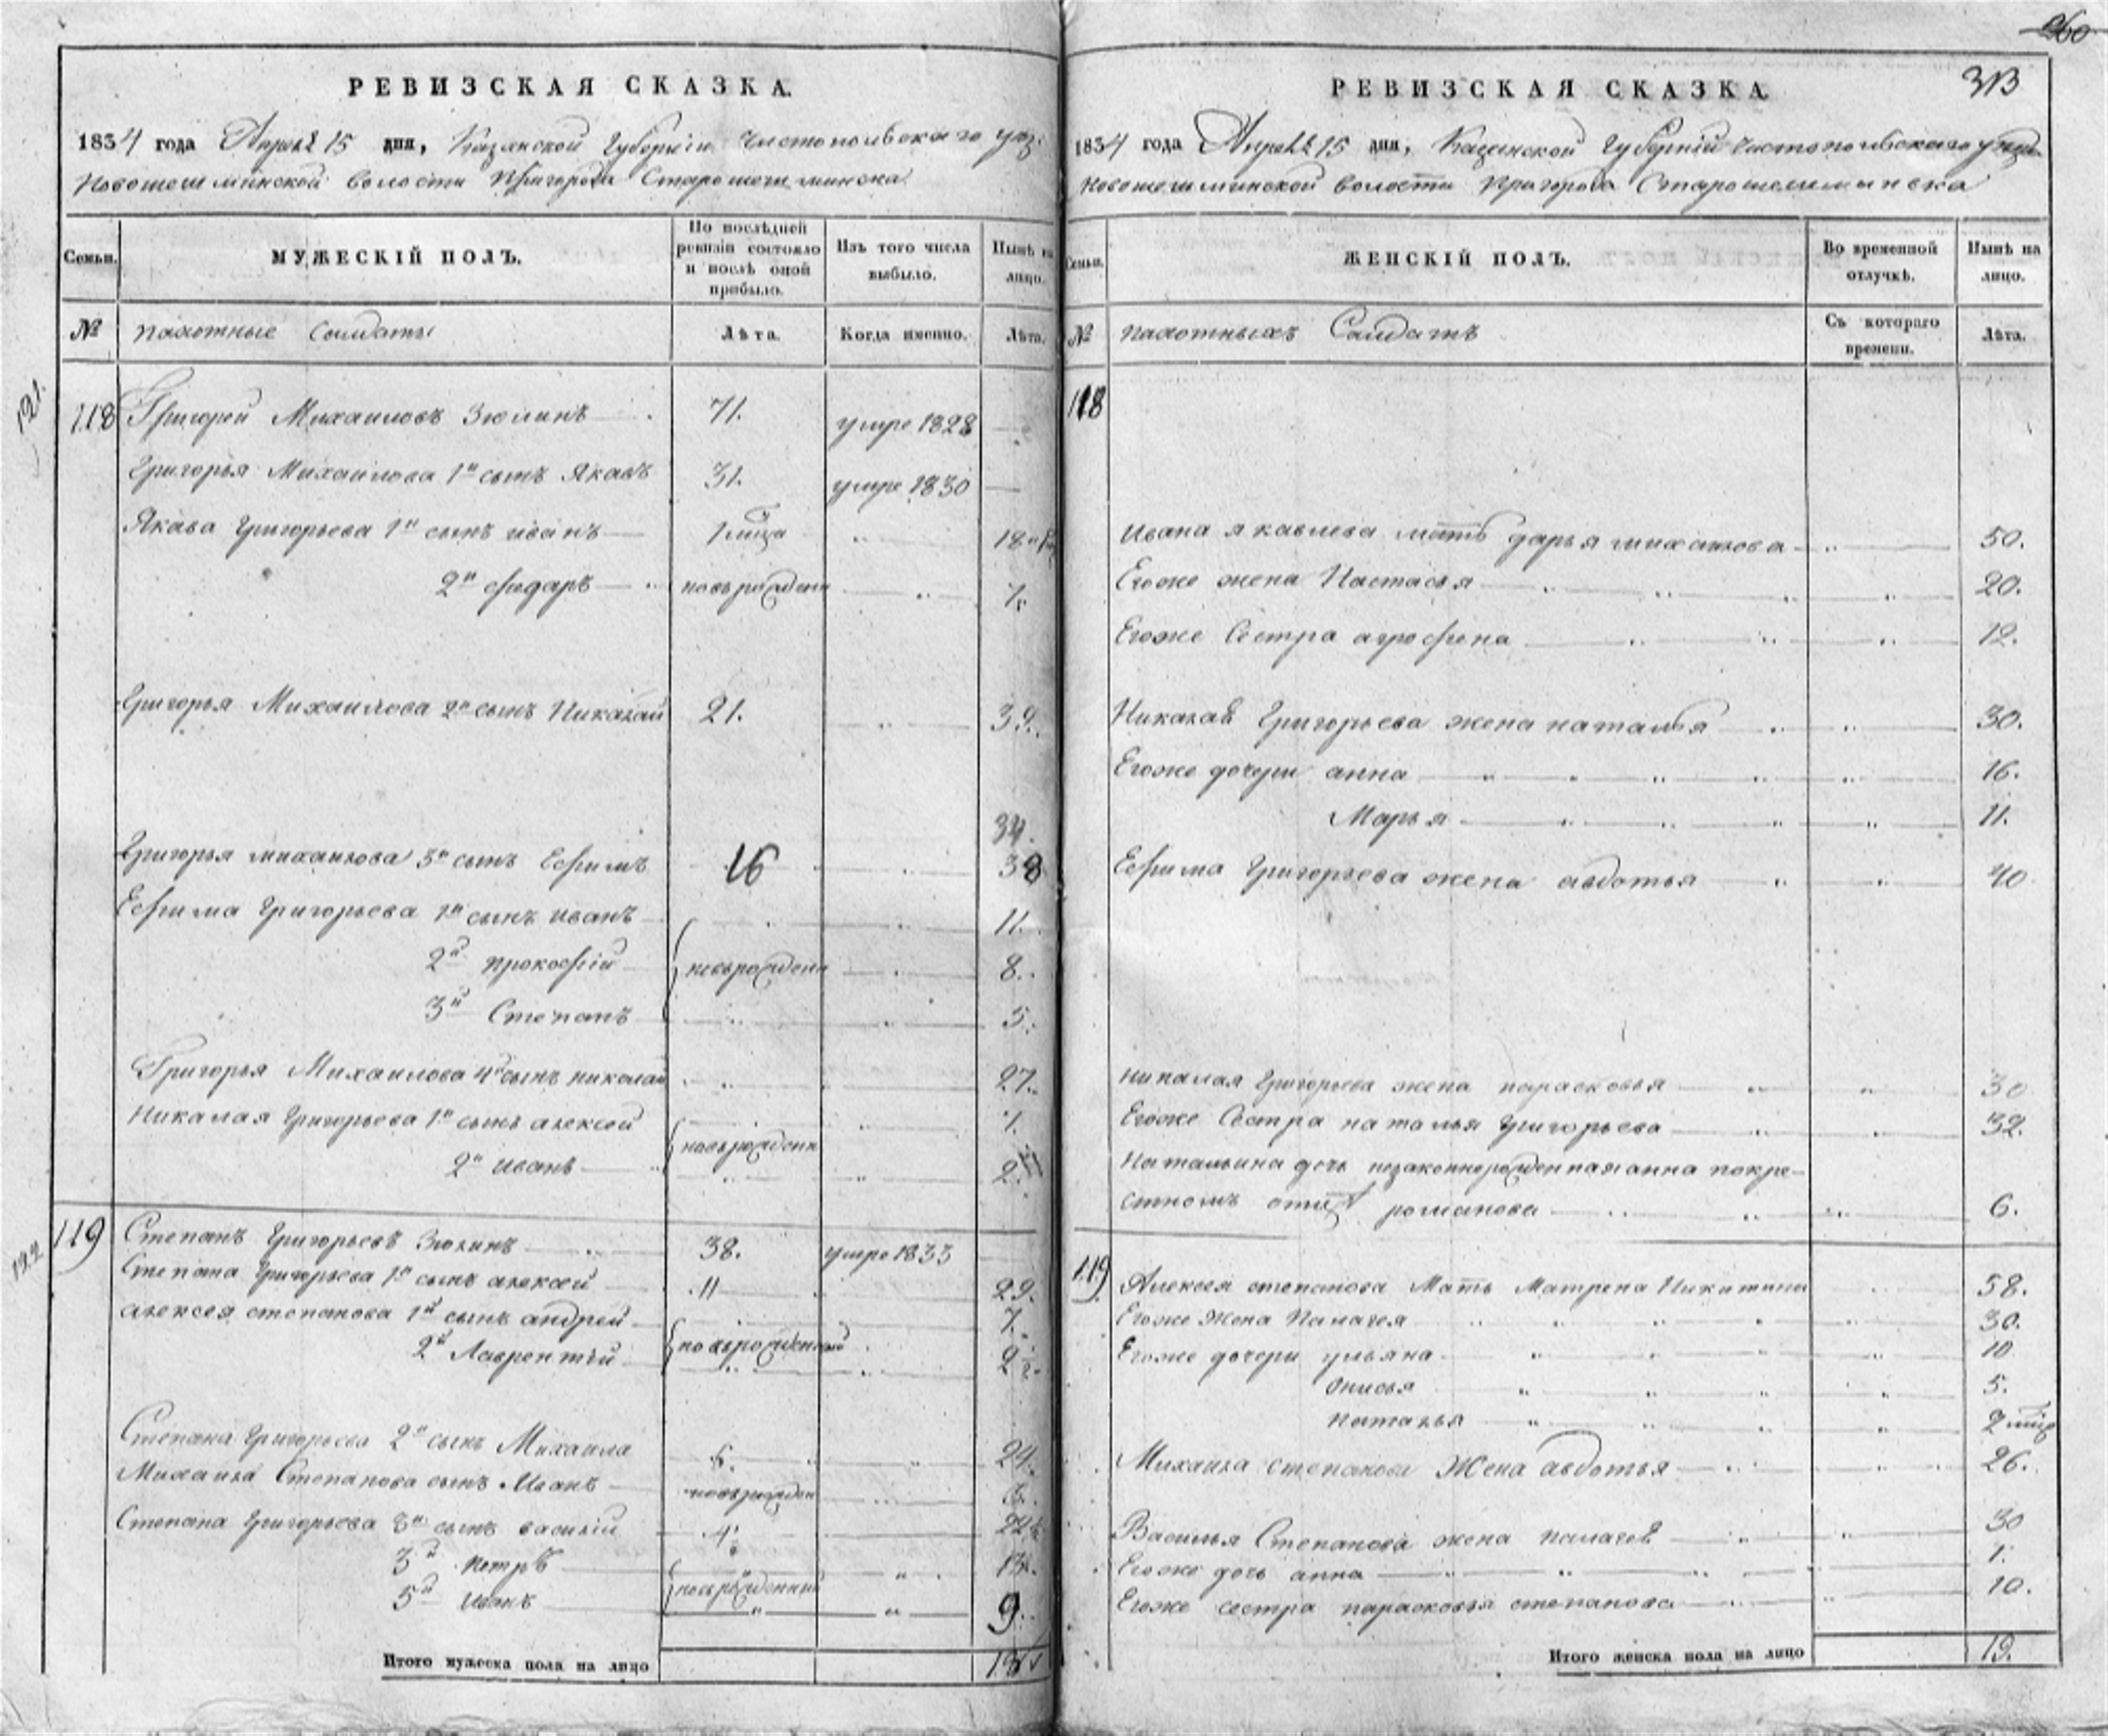 260
РЕВИЗСКАЯ СКАЗКА.
1834 года Апреля 15 дня, Казанской Губерніи Чистопольскаго уез:
Новошешминской волости Пригорода Старошешминска
Семьи.
МУЖЕСКІЙ ПОЛЪ.
По послѣдней ревизіи состояло и послѣ оной прибыло.
Изъ того числа выбыло.
Нынѣ на лицо.
№ пахотные Солдаты
Лѣта.
Когда именно.
Лѣта.
121.
118 Григорей Михаиловъ Зюлинъ 71. умре 1828
Григорья Михаилова 1й сынъ Якавъ 31. умре 1830
Якава Григорьева 1й сынъ иванъ 1 18
2й федаръ новърожден 7.
Григорья Михаилова 2й сынъ Никалай 21. 39.
34.
Григорья михаилова 3й сынъ Ефимъ 16 38
Ефима Григорьева 1й сынъ иванъ 11.
2й прокофій новърожден 8.
3й Степанъ 5.
Григорья Михаилова 4й сынъ николай 27.
Никалая Григорьева 1й сынъ алексей 1.
новърожден
2й иванъ 2.
122
119 Степанъ Григорьевъ Зюлинъ 38. умре 1833
Степана Григорьева 1й сынъ алексей 11 29.
алексея степанова 1й сынъ андрей 7.
новърожденный
2й Лаврентий 2½.
Степана Григорьева 2й сынъ Михаила 6. 24.
Михаила Степанова сынъ Иванъ новърожден 3.
Степана Григорьева 3й сынъ василій 4. 22½
3й петръ 13.
новърожденный
5й иванъ 9.
Итого мужеска пола на лицо
313
РЕВИЗСКАЯ СКАЗКА
1834 года Апреля 15 дня, Казанской Губерній Чистопольскаго уезда
Новошешминской волости Пригорода Старошешминска
Семьи.
ЖЕНСКІЙ ПОЛЪ.
Во временной отлучкѣ.
Нынѣ на лицо.
№ пахотныхъ Салдатъ
Съ котораго времени.
Лѣта.
118
Ивана якавлева мать дарья михаилова 50.
Егоже жена Настасья 20.
Егоже Сестра агрофена 12.
Никалая Григорьева жена наталья 30.
Егоже дочери анна 16.
Марья 11.
Ефима Григорьева жена авдотья 40
никалая Григорьева жена парасковья 30
Егоже Сестра наталья Григорьева 32.
Натальина дочь незаконнорожденная анна покре-
стномъ отце романова 6.
119 Алексея степанова Мать Матрена Никитина 58.
Егоже Жена Палагея 30.
Егоже дочери ульяна 10
Онисья 5.
Наталья 2
Михаила степанова Жена авдотья 26.
Василья Степанова жена палагея 30
Егоже дочь анна 1.
Егоже сестра парасковья степанова 10.
Итого женска пола на лицо 19.